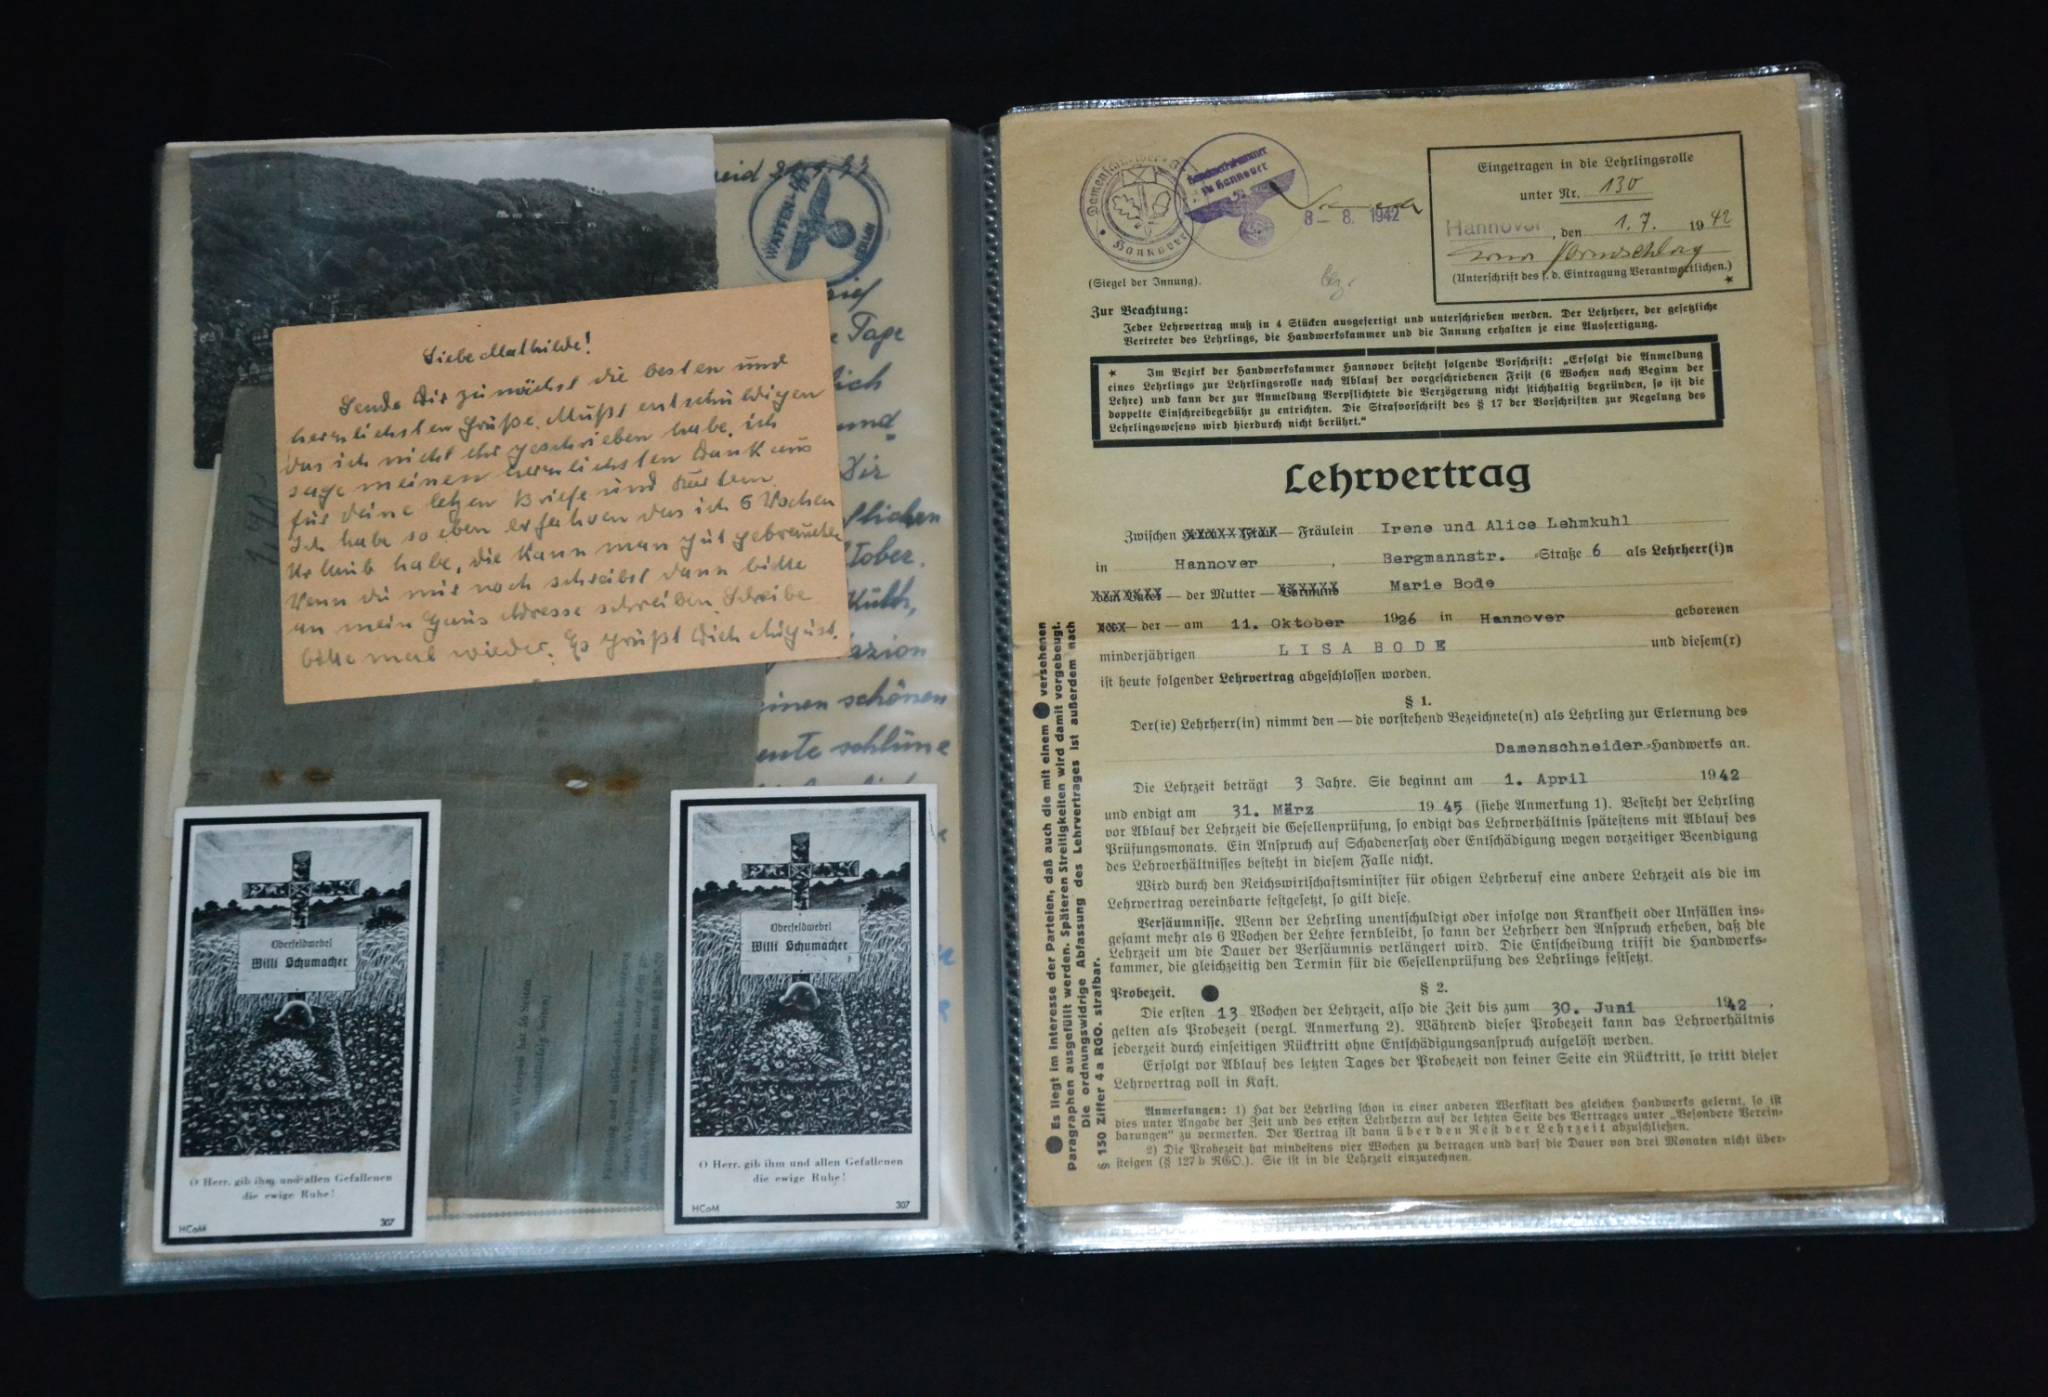 WAFFEN-SS
BERLIN
Tage
lich
und
Dir
tober.
einen schönen
Liebe Mathilde!
Sende Dir zunächst die besten und
herzlichsten Grüße. Mußt entschuldigen
das ich nicht ehr geschrieben habe, ich
sage meinen herzlichsten Dank aus
für deine letzen Briefe und Karten.
Ich habe so eben erfahren das ich 6 Wochen
Urlaub habe, die kann man gut gebrauchen
Wenn du mir noch schreibst dann bitte
an mein Haus Adresse schreiben, Schreibe
bitte mal wieder. Es grüßt Dich August.
Oberfeldwebel
Willi Schumacher
O Herr, gib ihm und allen Gefallenen
die ewige Ruhe!
HCoM 307
Oberfeldwebel
Willi Schumacher
O Herr, gib ihm und allen Gefallenen
die ewige Ruhe!
HCoM 307
Hannover
Handwerkskammer
zu Hannover
8. 1942
Eingetragen in die Lehrlingsrolle
unter Nr. 130
Hannover, den 1. 7. 1942
(Unterschrift des f. d. Eintragung Verantwortlichen.)
(Siegel der Innung).
Zur Beachtung:
Jeder Lehrvertrag muß in 4 Stücken ausgefertigt und unterschrieben werden. Der Lehrherr, der gesetzliche
Vertreter des Lehrlings, die Handwerkskammer und die Innung erhalten je eine Ausfertigung.
* Im Bezirk der Handwerkskammer Hannover besteht folgende Vorschrift: „Erfolgt die Anmeldung
eines Lehrlings zur Lehrlingsrolle nach Ablauf der vorgeschriebenen Frist (6 Wochen nach Beginn der
Lehre) und kann der zur Anmeldung Verpflichtete die Verzögerung nicht stichhaltig begründen, so ist die
doppelte Einschreibegebühr zu entrichten. Die Strafvorschrift des § 17 der Vorschriften zur Regelung des
Lehrlingswesens wird hierdurch nicht berührt.“
Lehrvertrag
Zwischen — Fräulein Irene und Alice Lehmkuhl
in Hannover, Bergmannstr. -Straße 6 als Lehrherr(i)n
— der Mutter — Marie Bode
— der — am 11. Oktober 1926 in Hannover geborenen
minderjährigen LISA BODE und diesem(r)
ist heute folgender Lehrvertrag abgeschlossen worden.
§ 1.
Der(ie) Lehrherr(in) nimmt den — die vorstehend Bezeichnete(n) als Lehrling zur Erlernung des
Damenschneider-Handwerks an.
Die Lehrzeit beträgt 3 Jahre. Sie beginnt am 1. April 1942
und endigt am 31. März 1945 (siehe Anmerkung 1). Besteht der Lehrling
vor Ablauf der Lehrzeit die Gesellenprüfung, so endigt das Lehrverhältnis spätestens mit Ablauf des
Prüfungsmonats. Ein Anspruch auf Schadenersatz oder Entschädigung wegen vorzeitiger Beendigung
des Lehrverhältnisses besteht in diesem Falle nicht.
Wird durch den Reichswirtschaftsminister für obigen Lehrberuf eine andere Lehrzeit als die im
Lehrvertrag vereinbarte festgesetzt, so gilt diese.
Versäumnisse. Wenn der Lehrling unentschuldigt oder infolge von Krankheit oder Unfällen ins-
gesamt mehr als 6 Wochen der Lehre fernbleibt, so kann der Lehrherr den Anspruch erheben, daß die
Lehrzeit um die Dauer der Versäumnis verlängert wird. Die Entscheidung trifft die Handwerks-
kammer, die gleichzeitig den Termin für die Gesellenprüfung des Lehrlings festsetzt.
Probezeit. § 2.
Die ersten 13 Wochen der Lehrzeit, also die Zeit bis zum 30. Juni 1942,
gelten als Probezeit (vergl. Anmerkung 2). Während dieser Probezeit kann das Lehrverhältnis
jederzeit durch einseitigen Rücktritt ohne Entschädigungsanspruch aufgelöst werden.
Erfolgt vor Ablauf des letzten Tages der Probezeit von keiner Seite ein Rücktritt, so tritt dieser
Lehrvertrag voll in Kaft.
Anmerkungen: 1) Hat der Lehrling schon in einer anderen Werkstatt des gleichen Handwerks gelernt, so ist
dies unter Angabe der Zeit und des ersten Lehrherrn auf der letzten Seite des Vertrages unter „Besondere Verein-
barungen“ zu vermerken. Der Vertrag ist dann über den Rest der Lehrzeit abzuschließen.
2) Die Probezeit hat mindestens vier Wochen zu betragen und darf die Dauer von drei Monaten nicht über-
steigen (§ 127 b RGO.). Sie ist in die Lehrzeit einzurechnen.
Es liegt im Interesse der Parteien, daß auch die mit einem ● versehenen
Paragraphen ausgefüllt werden. Späteren Streitigkeiten wird damit vorgebeugt.
Die ordnungswidrige Abfassung des Lehrvertrages ist außerdem nach
§ 150 Ziffer 4a RGO. strafbar.